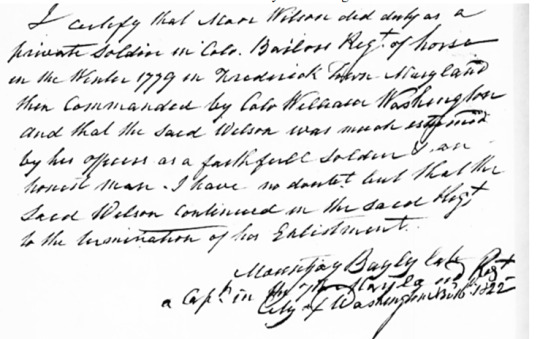 I certify that Marr Wilson did duty as a
private Soldier in Colo. Bailors Regt. of horse
in the Winter 1779 in Frederick Town Maryland
then Commanded by Colo William Washington
and that the said Wilson was much esteemed
by his officers as a faithfull Soldier & an
honest man. I have no doubt but that the
said Wilson continued in the said Regt
to the termination of his Enlistment.
Mountjoy Bayly late
a Capt. in the 7th Maryland Regt
City of Washington 1822